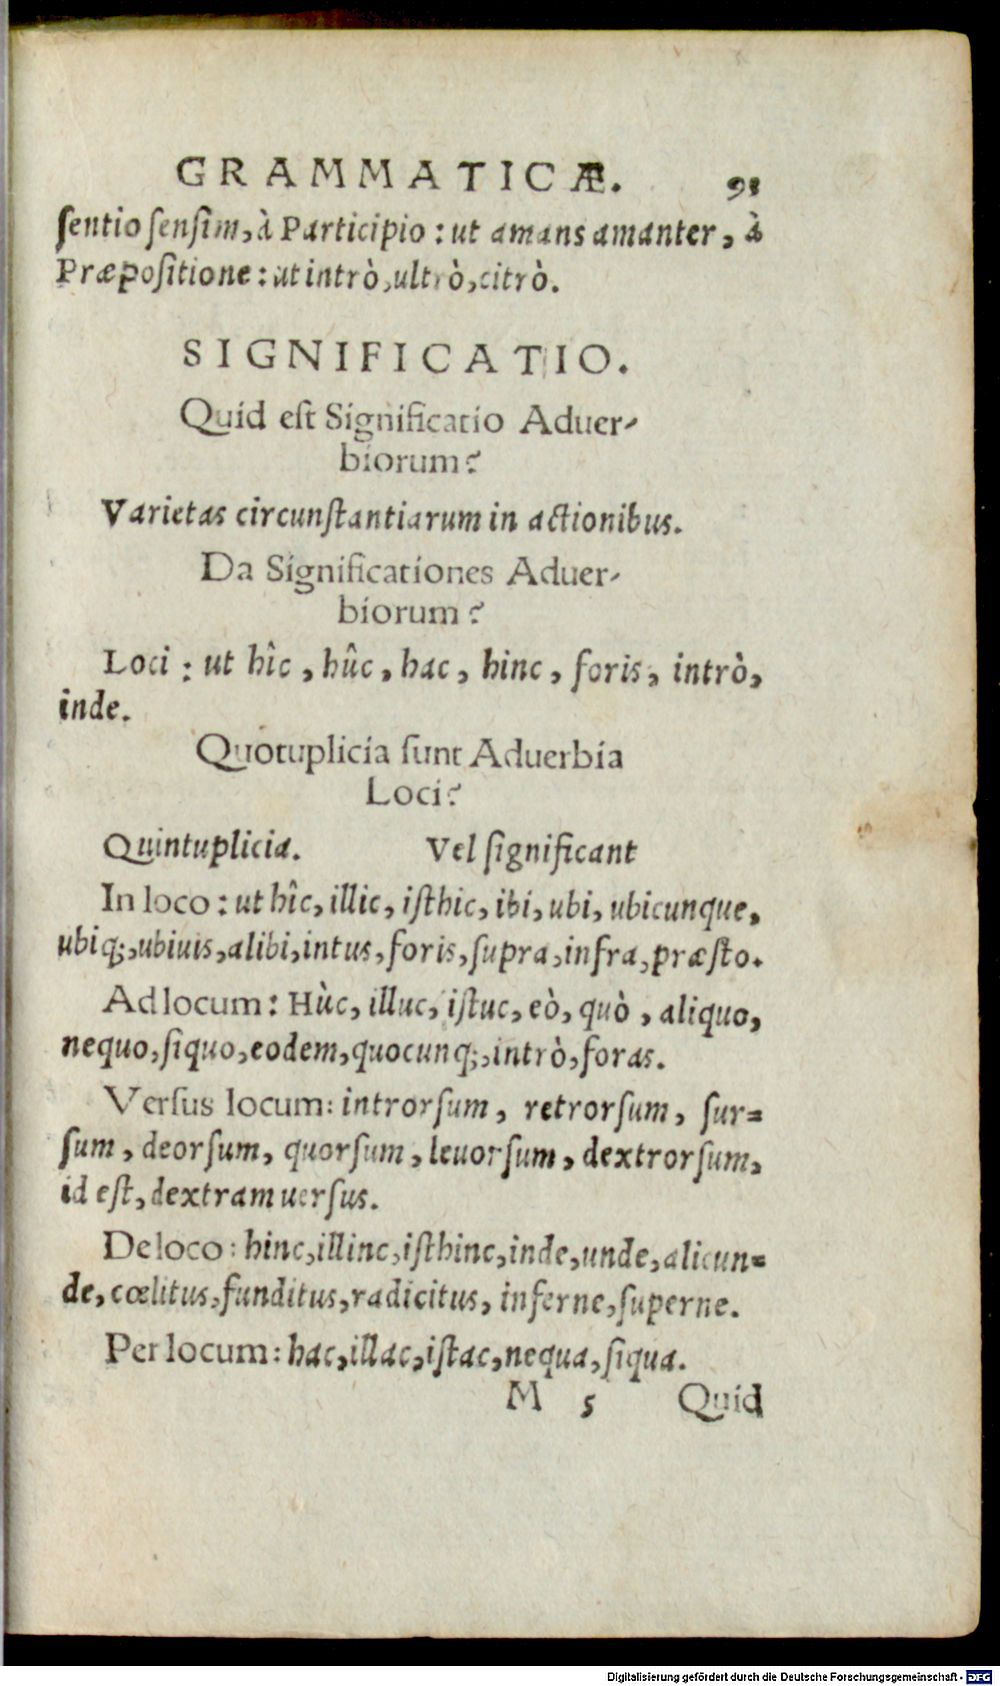 GRAMMATICÆ. 91
ſentio ſenſim, à Participio : ut amans amanter, à
Præpoſitione : ut intrò, ultrò, citrò.
SIGNIFICATIO.
Quid eſt Significatio Aduer-
biorum?
Varietas circunſtantiarum in actionibus.
Da Significationes Aduer-
biorum?
Loci : ut hîc, hûc, hac, hinc, foris, intrò,
inde.
Quotuplicia ſunt Aduerbia
Loci?
Quintuplicia. Vel ſignificant
In loco : ut hîc, illic, iſthic, ibi, ubi, ubicunque,
ubiq;, ubiuis, alibi, intus, foris, ſupra, infra, præſto.
Ad locum : Hùc, illuc, iſtuc, eò, quò, aliquo,
nequo, ſiquo, eodem, quocunq;, intrò, foras.
Verſus locum : introrſum, retrorſum, ſur=
ſum, deorſum, quorſum, leuorſum, dextrorſum,
id eſt, dextram uerſus.
De loco : hinc, illinc, iſthinc, inde, unde, alicun=
de, cœlitus, funditus, radicitus, inferne, ſuperne.
Per locum : hac, illac, iſtac, nequa, ſiqua.
M 5 Quid
Digitalisierung gefördert durch die Deutsche Forschungsgemeinschaft - DFG